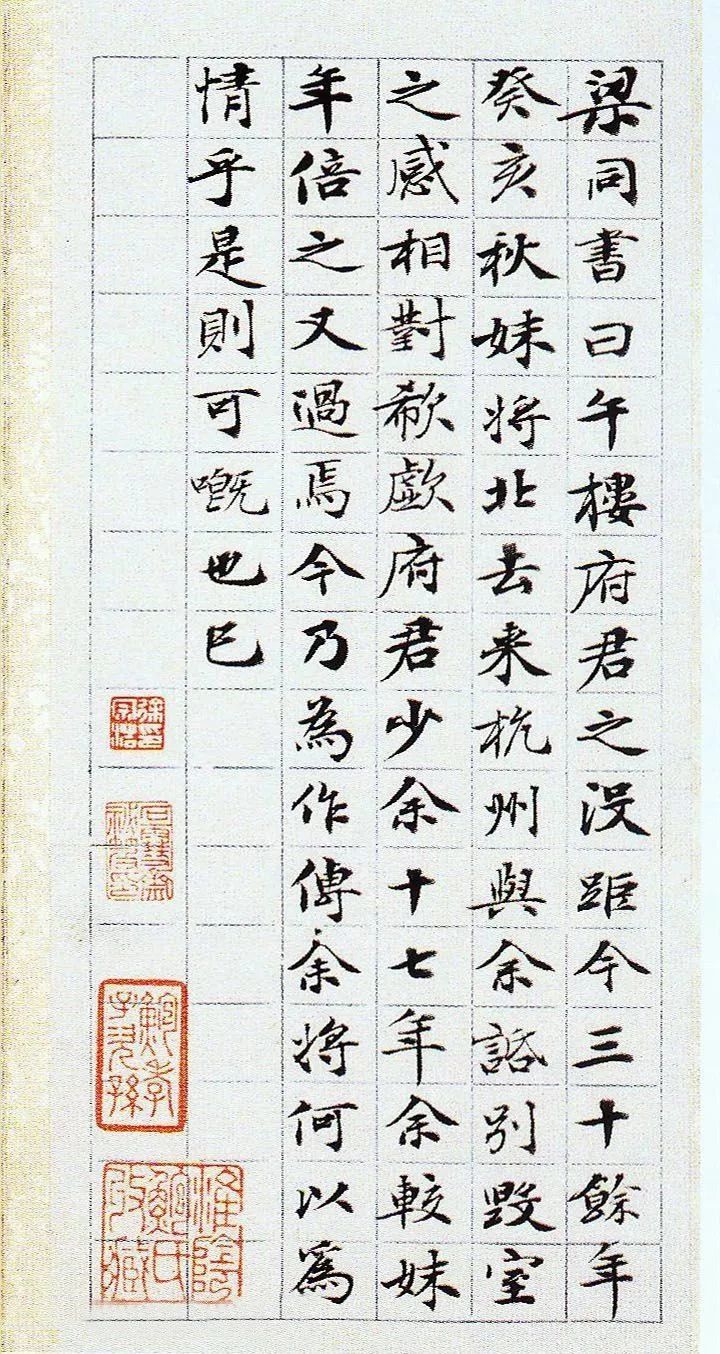 梁同書曰午樓府君之没距今三十餘年
癸亥秋妹将北去来杭州與余話别毁室
之感相對欷歔府君少余十七年余較妹
年倍之又過焉今乃為作傳余将何以爲
情乎是則可嘅也已
淮陰
鮑氏
攷藏